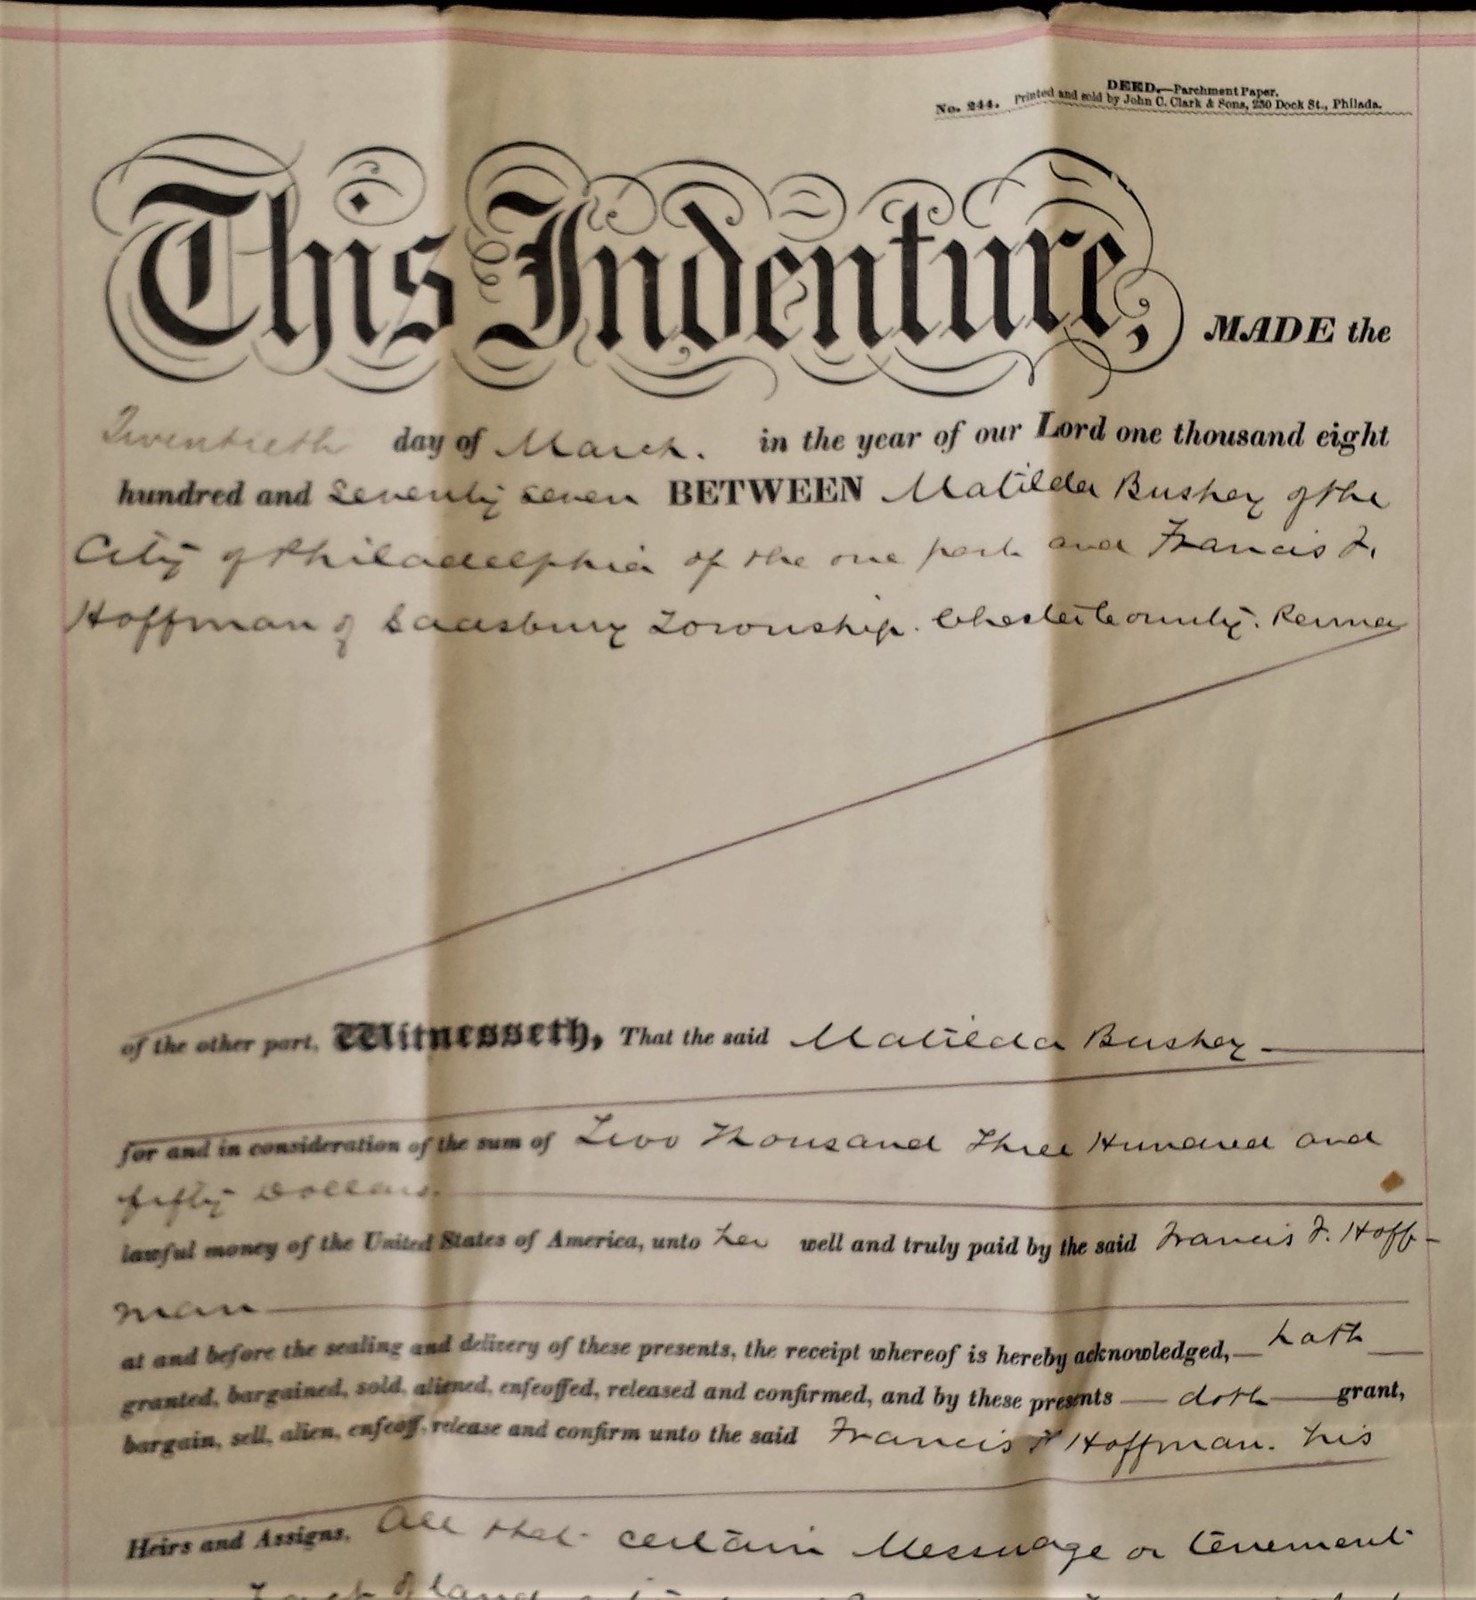 DEED.—Parchment Paper.
No. 244. Printed and sold by John C. Clark & Sons, 230 Dock St., Philada.
This Indenture, MADE the
Twentieth day of March. in the year of our Lord one thousand eight
hundred and Seventy seven BETWEEN Matilda Bushey of the
City of Philadelphia of the one part and Francis F.
Hoffman of Sadsbury Township. Chester County. Penna
of the other part, Witnesseth, That the said Matilda Bushey
for and in consideration of the sum of Two Thousand Three Hundred and
fifty Dollars.
lawful money of the United States of America, unto her well and truly paid by the said Francis F. Hoff-
man
at and before the sealing and delivery of these presents, the receipt whereof is hereby acknowledged,— hath
granted, bargained, sold, aliened, enfeoffed, released and confirmed, and by these presents — doth — grant,
bargain, sell, alien, enfeoff, release and confirm unto the said Francis F Hoffman. his
Heirs and Assigns, All that certain Messuage or tenement
of land